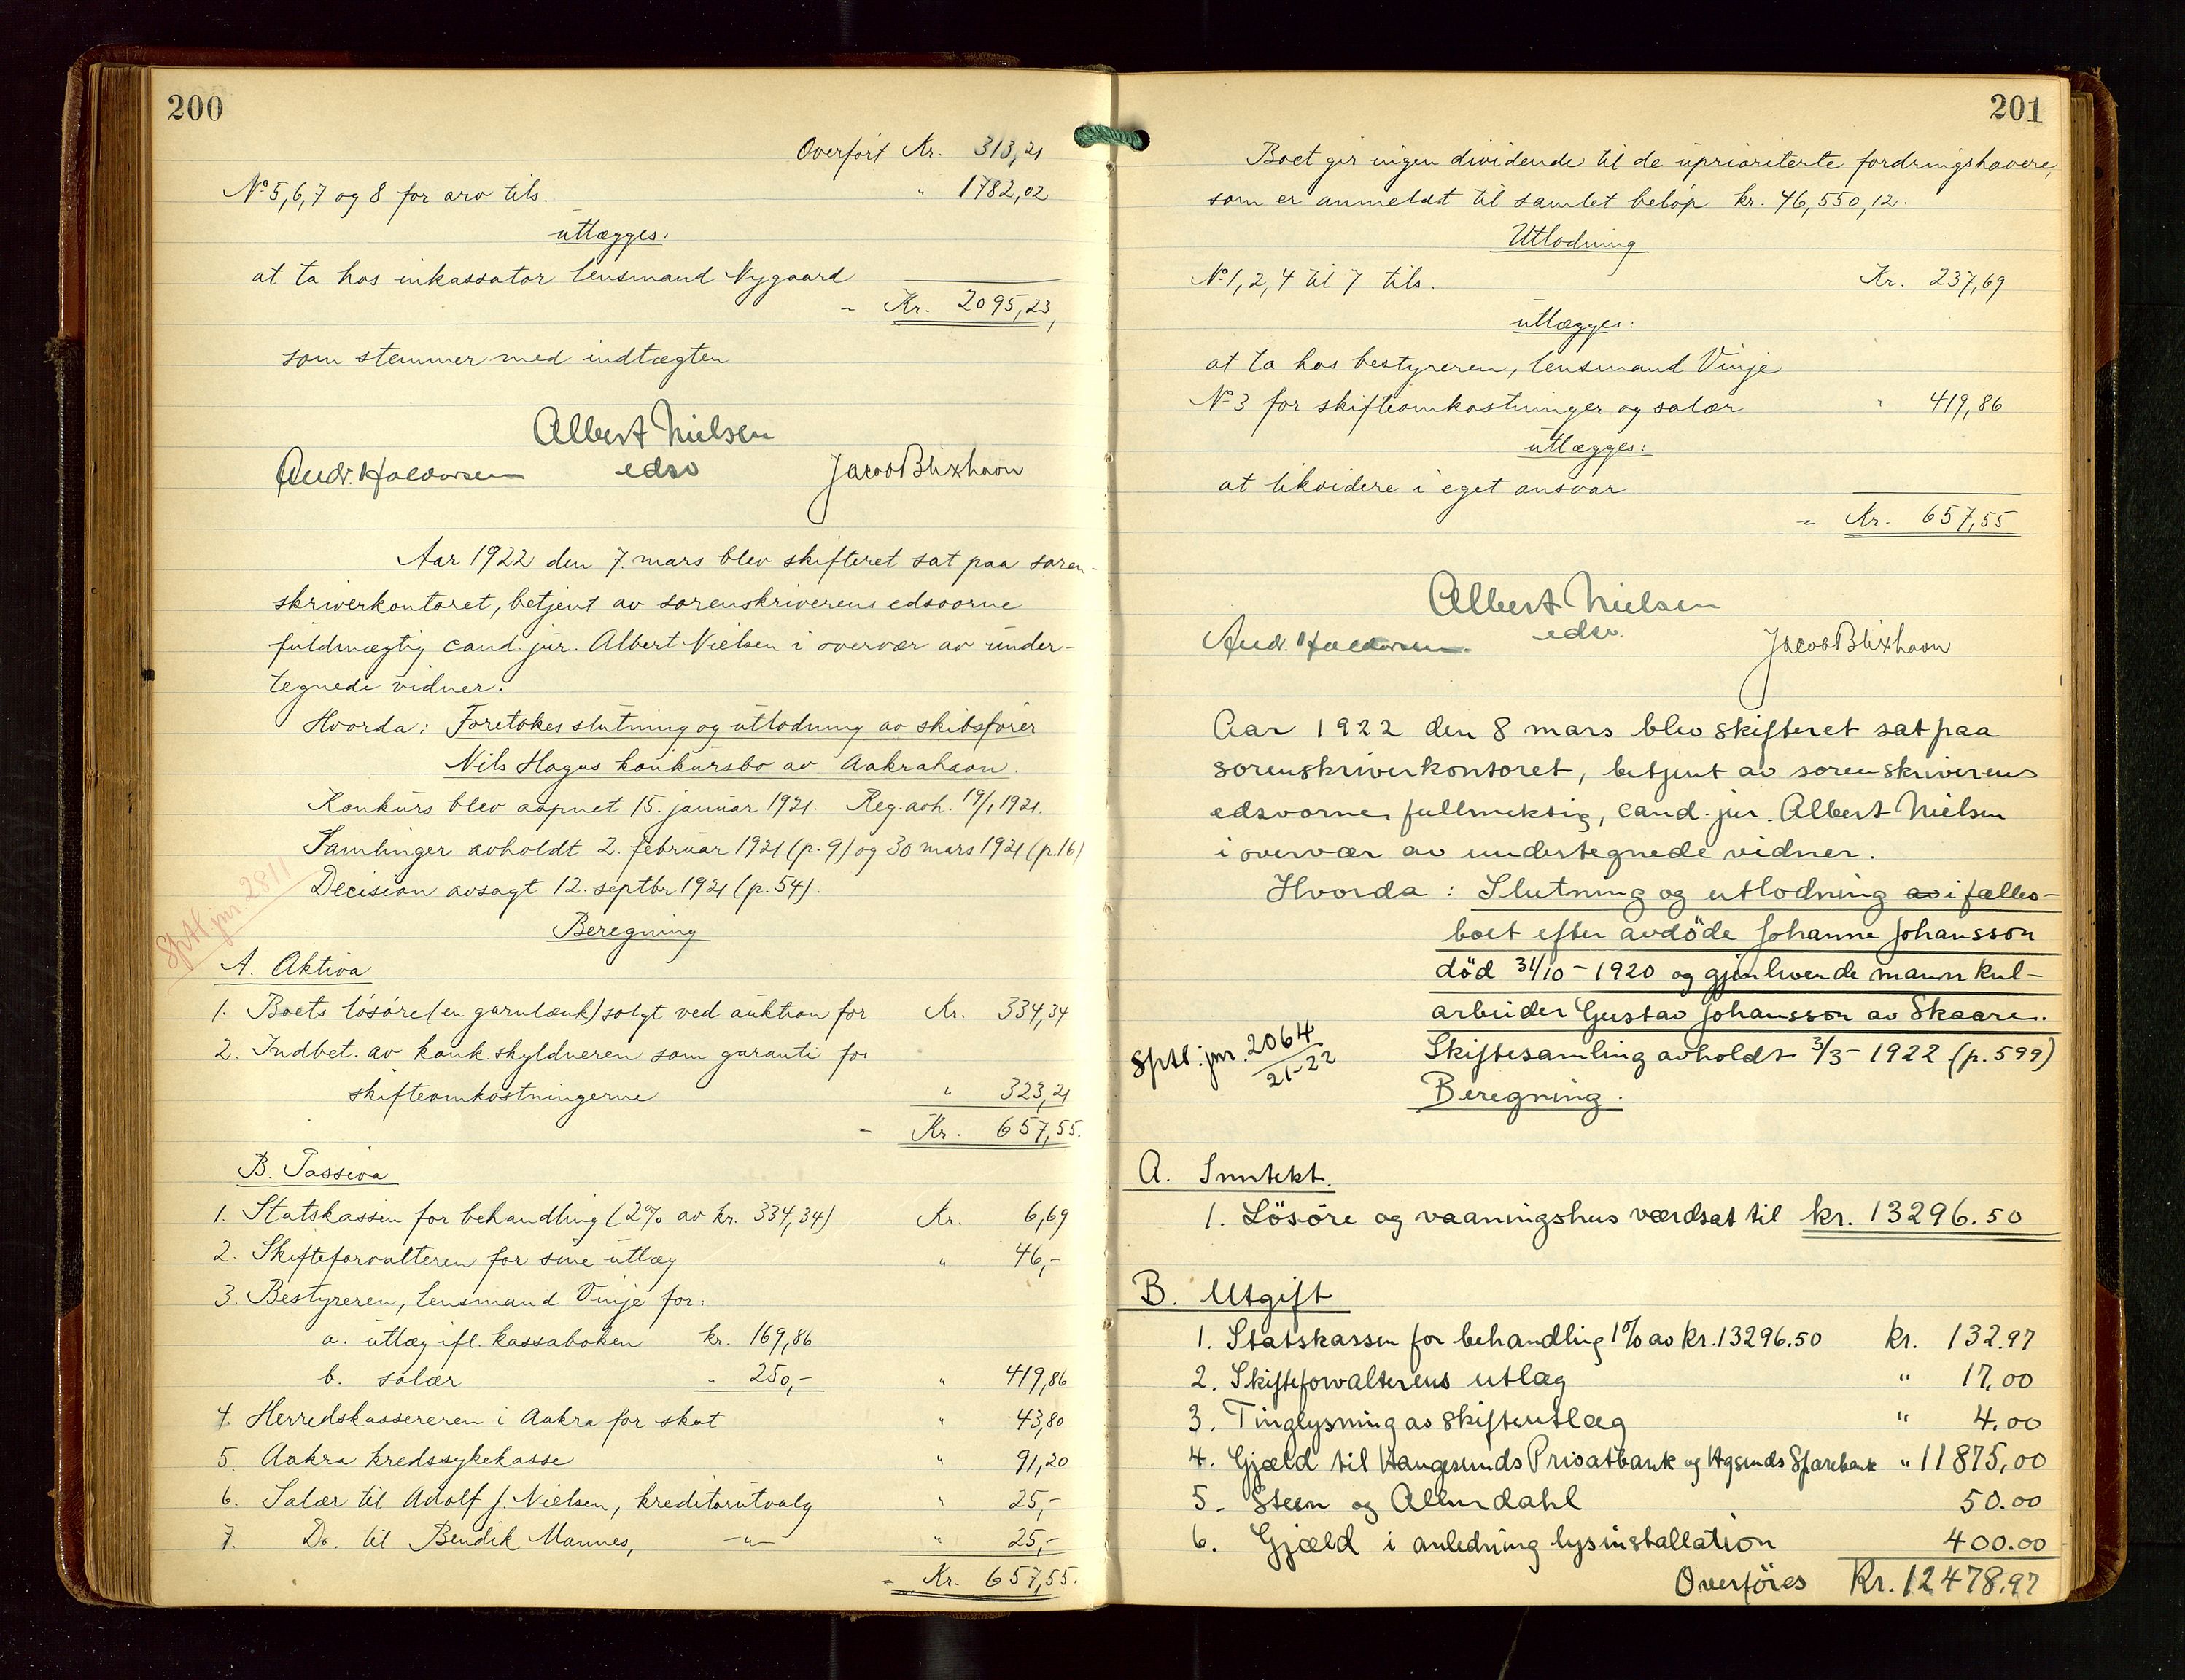 200
Overført Kr. 313,21
No 5, 6, 7 og 8 for arv tils. " 1782,02
utlægges:
at ta hos inkassator lensmand Nygaard
- Kr. 2095,23,
som stemmer med indtægten
Albert Nielsen
edsv
Andr. Haldorsen
Jacob Blixhavn
Aar 1922 den 7. mars blev skifteret sat paa soren-
skriverkontoret, betjent av sorenskriverens edsvorne
fuldmægtig cand. jur. Albert Nielsen i overvær av under-
tegnede vidner.
Hvorda: Foretokes slutning og utlodning av skibsfører
Nils Hagus konkursbo av Aakrahavn.
Konkurs blev aapnet 15. januar 1921. Reg. avh. 19/1 1921.
Samlinger avholdt 2. februar 1921 (p. 9) og 30 mars 1921 (p. 16)
Decision avsagt 12. septbr 1921 (p. 54).
Sptl. jnr. 2811
Beregning
A. Aktiva
1. Boets løsøre (en garnlænk) solgt ved auktion for Kr. 334,34
2. Indbet. av konk. skyldneren som garanti for
skifteomkostningerne " 323,21
- Kr. 657,55.
B. Passiva
1. Statskassen for behandling (2% av kr. 334,34) Kr. 6,69
2. Skifteforvalteren for sine utlæg " 46,-
3. Bestyreren, lensmand Vinje for:
a. utlæg ifl. kassaboken kr. 169,86
b. salær " 250,- " 419,86
4. Herredskassereren i Aakra for skat " 43,80
5. Aakra kredssykekasse " 91,20
6. Salær til Adolf J. Nielsen, kreditorutvalg " 25,-
7. Do. til Bendik Mannes, -"- " 25,-
- Kr. 657,55.
201
Boet gir ingen dividende til de uprioriterte fordringshavere,
som er anmeldt til samlet beløp kr. 46,550,12.
Utlodning
No 1, 2, 4 til 7 tils. Kr. 237,69
utlægges:
at ta hos bestyreren, lensmand Vinje
No 3 for skifteomkostninger og salær " 419,86
utlægges:
at likvidere i eget ansvar
= Kr. 657,55
Albert Nielsen
edsv.
Andr. Haldorsen
Jacob Blixhavn
Aar 1922 den 8 mars blev skifteret sat paa
sorenskriverkontoret, betjent av sorenskriverens
edsvorne fullmektig, cand. jur. Albert Nielsen
i overvær av undertegnede vidner.
Hvorda: Slutning og utlodning av i fælles-
boet efter avdöde Johanne Johansson
död 31/10 - 1920 og gjenlevende mann kul-
arbeider Gustav Johansson av Skaare.
Sptl. jnr. 2064
21-22
Skiftesamling avholdt 3/3 - 1922 (p. 599)
Beregning.
A. Inntekt.
1. Lösöre og vaaningshus værdsat til kr. 13296.50
B. Utgift
1. Statskassen for behandling 1% av kr. 13296.50 kr. 132.97
2. Skifteforvalterens utlæg " 17.00
3. Tinglysning av skifteutlæg " 4.00
4. Gjæld til Haugesunds Privatbank og Hgsunds Sparebank " 11875,00
5. Steen og Allendahl 50.00
6. Gjæld i anledning lysinstallation 400.00
Overföres Kr. 12478.97